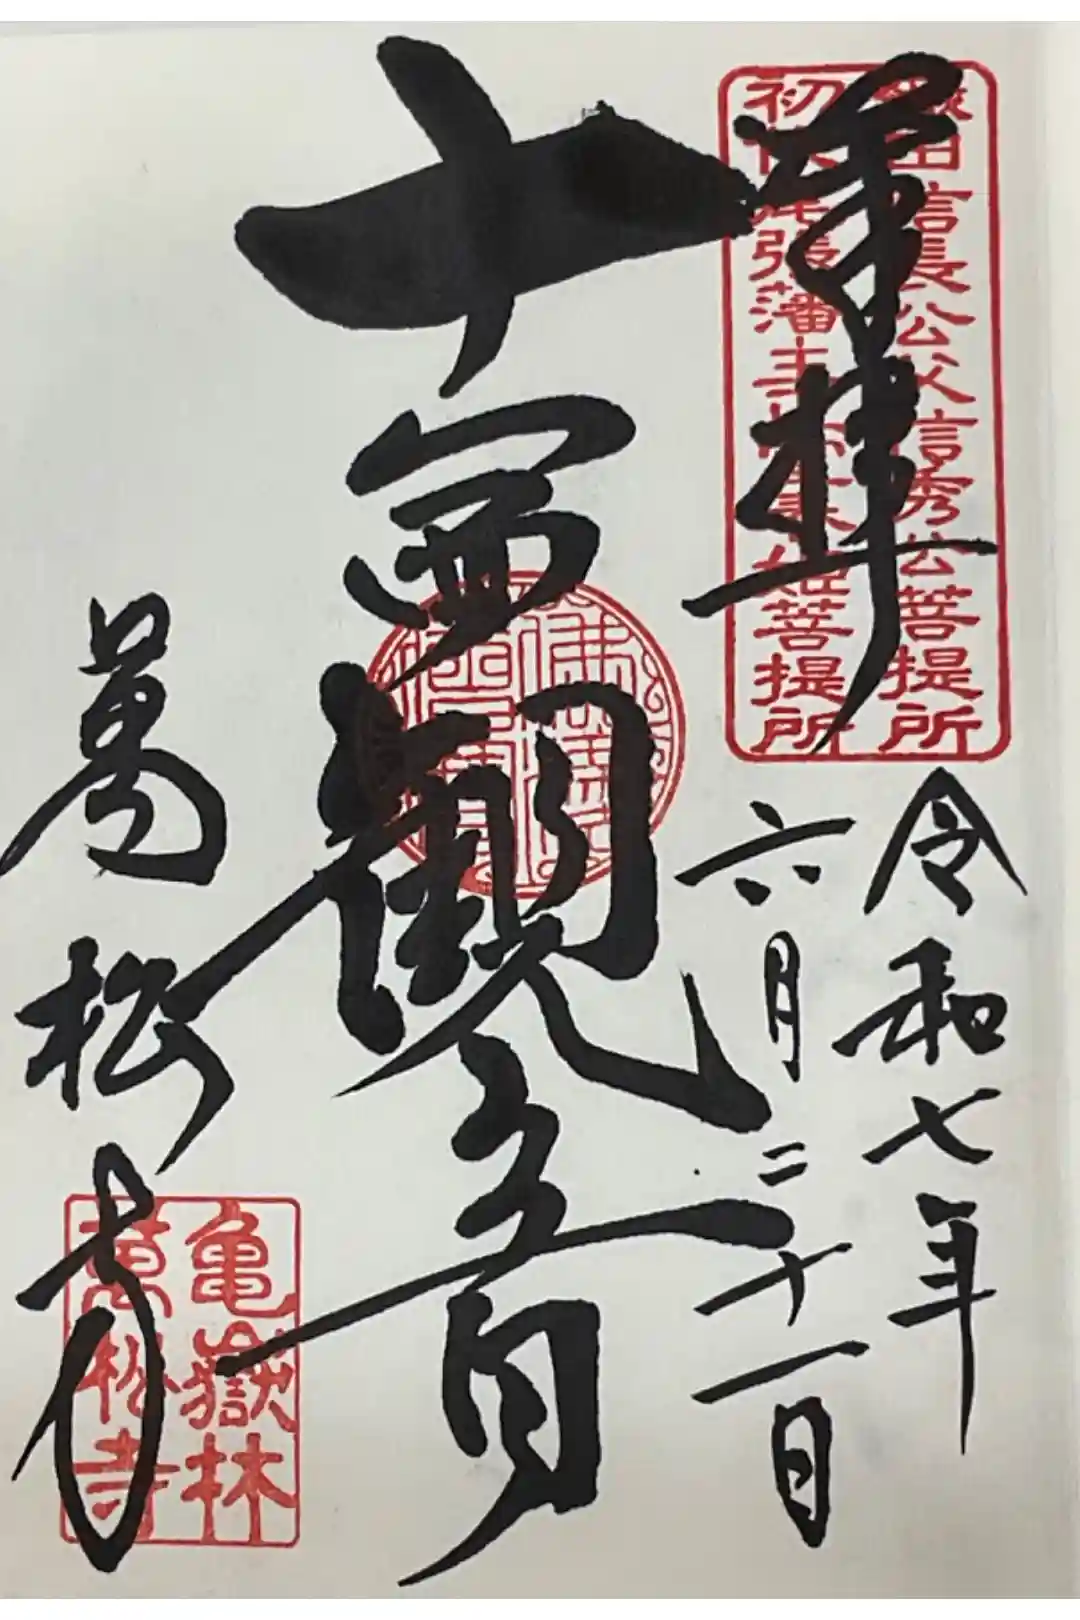 奉拝
織田信長公父信秀公菩提所
初代尾張藩主 春姫菩提所
令和七年
六月二十一日
十一面観世音
萬松寺
亀嶽林
萬松寺